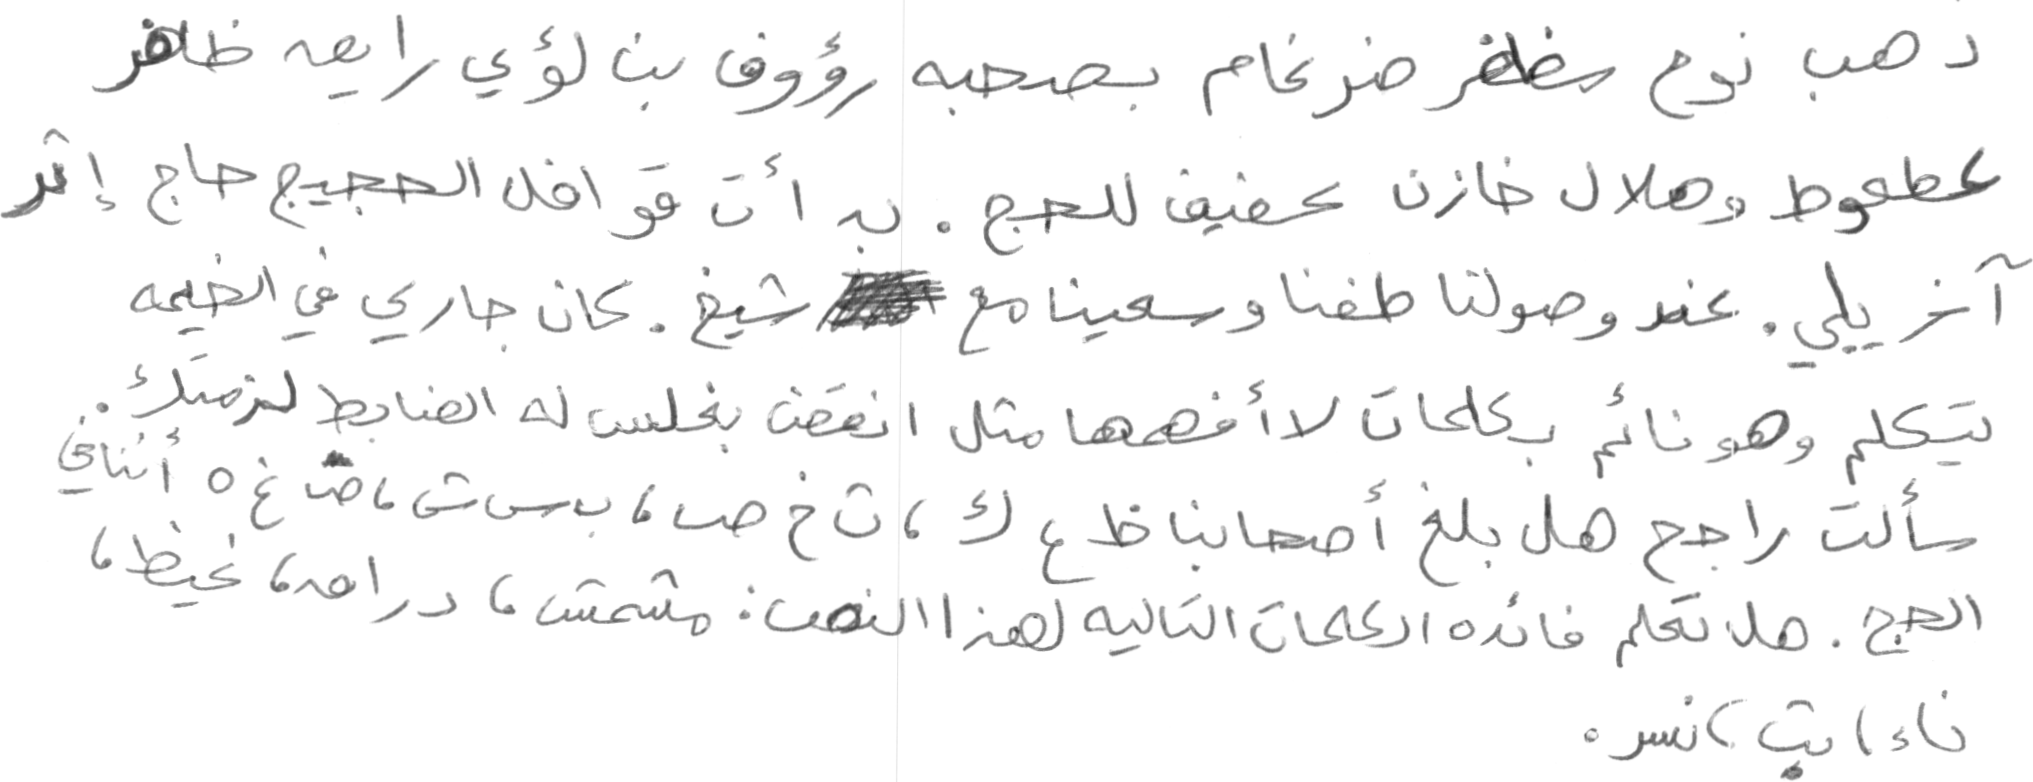 ذهب نوح مظفر ضرغام بصحبه رؤوف بن لؤي رايعه ظافر
عطعوط وهلال خازن عفيف للحج. بد أت قوافل الحجيج حاج إثر
آخر يلي. عند وصولنا طفنا وسعينا مع شيخ. كان جاري في الخيمه
يتكلم وهو نائم بكلمات لا أفهمها مثل انغض بغلس له الضابط لزمتك.
سألت راجح هل بلغ أصحابنا ظ ع ك، ث خ ص، ب س ش، ض غ ه أثنائي
الحج. هل تعلم فائده الكلمات التاليه لهذا النص: مشمش، دراهه، غيظ،
ناء، يث، نسر.